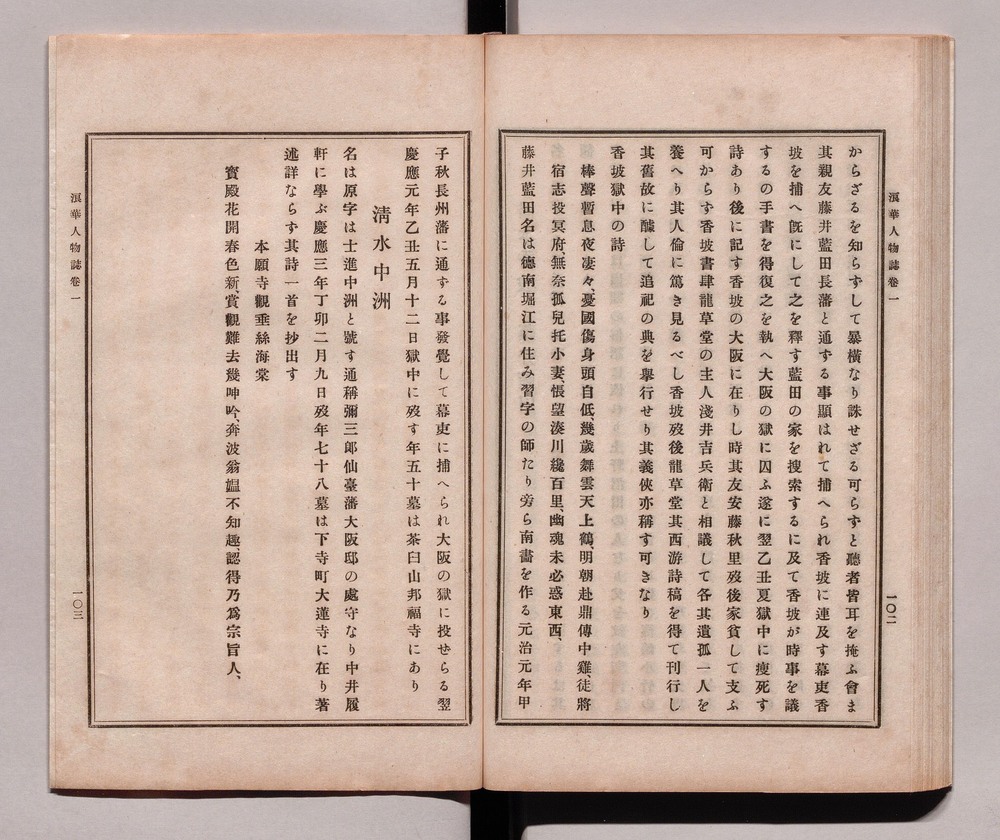 浪華人物誌卷一
一〇二
からざるを知らずして暴橫なり誅せざる可らずと聽者皆耳を掩ふ會ま
其親友藤井藍田長藩と通する事顯はれて捕へられ香坡に連及す幕吏香
坡を捕へ旣にして之を釋す藍田の家を搜索するに及て香坡が時事を議
するの手書を得復之を執へ大阪の獄に囚ふ遂に翌乙丑夏獄中に瘦死す
詩あり後に記す香坡の大阪に在りし時其友安藤秋里歿後家貧して支ふ
可からず香坡書肆龍草堂の主人淺井吉兵衛と相議して各其遺孤一人を
養へり其人倫に篤き見るべし香坡歿後龍草堂其西游詩稿を得て刊行し
其舊故に醵して追祀の典を擧行せり其義俠亦稱す可きなり
香坡獄中の詩
棒聲暫息夜凄々、憂國傷身頭自低、幾歲舞雲天上鶴明朝赴鼎傳中雞、徒將
宿志投冥府、無奈孤兒托小妻、悵望湊川纔百里、幽魂未必惑東西、
藤井藍田名は德南堀江に住み習字の師たり旁ら南畵を作る元治元年甲
子秋長州藩に通ずる事發覺して幕吏に捕へられ大阪の獄に投せらる翌
慶應元年乙丑五月十二日獄中に歿す年五十墓は茶臼山邦福寺にあり
淸水中洲
名は原字は士進中洲と號す通稱彌三郞仙臺藩大阪邸の處守なり中井履
軒に學ぶ慶應三年丁卯二月九日歿年七十八墓は下寺町大蓮寺に在り著
述詳ならず其詩一首を抄出す
本願寺觀垂絲海棠
寶殿花開春色新、賞觀難去幾呻吟、奔波翁媼不知趣、認得乃爲宗旨人、
浪華人物誌卷一
一〇三